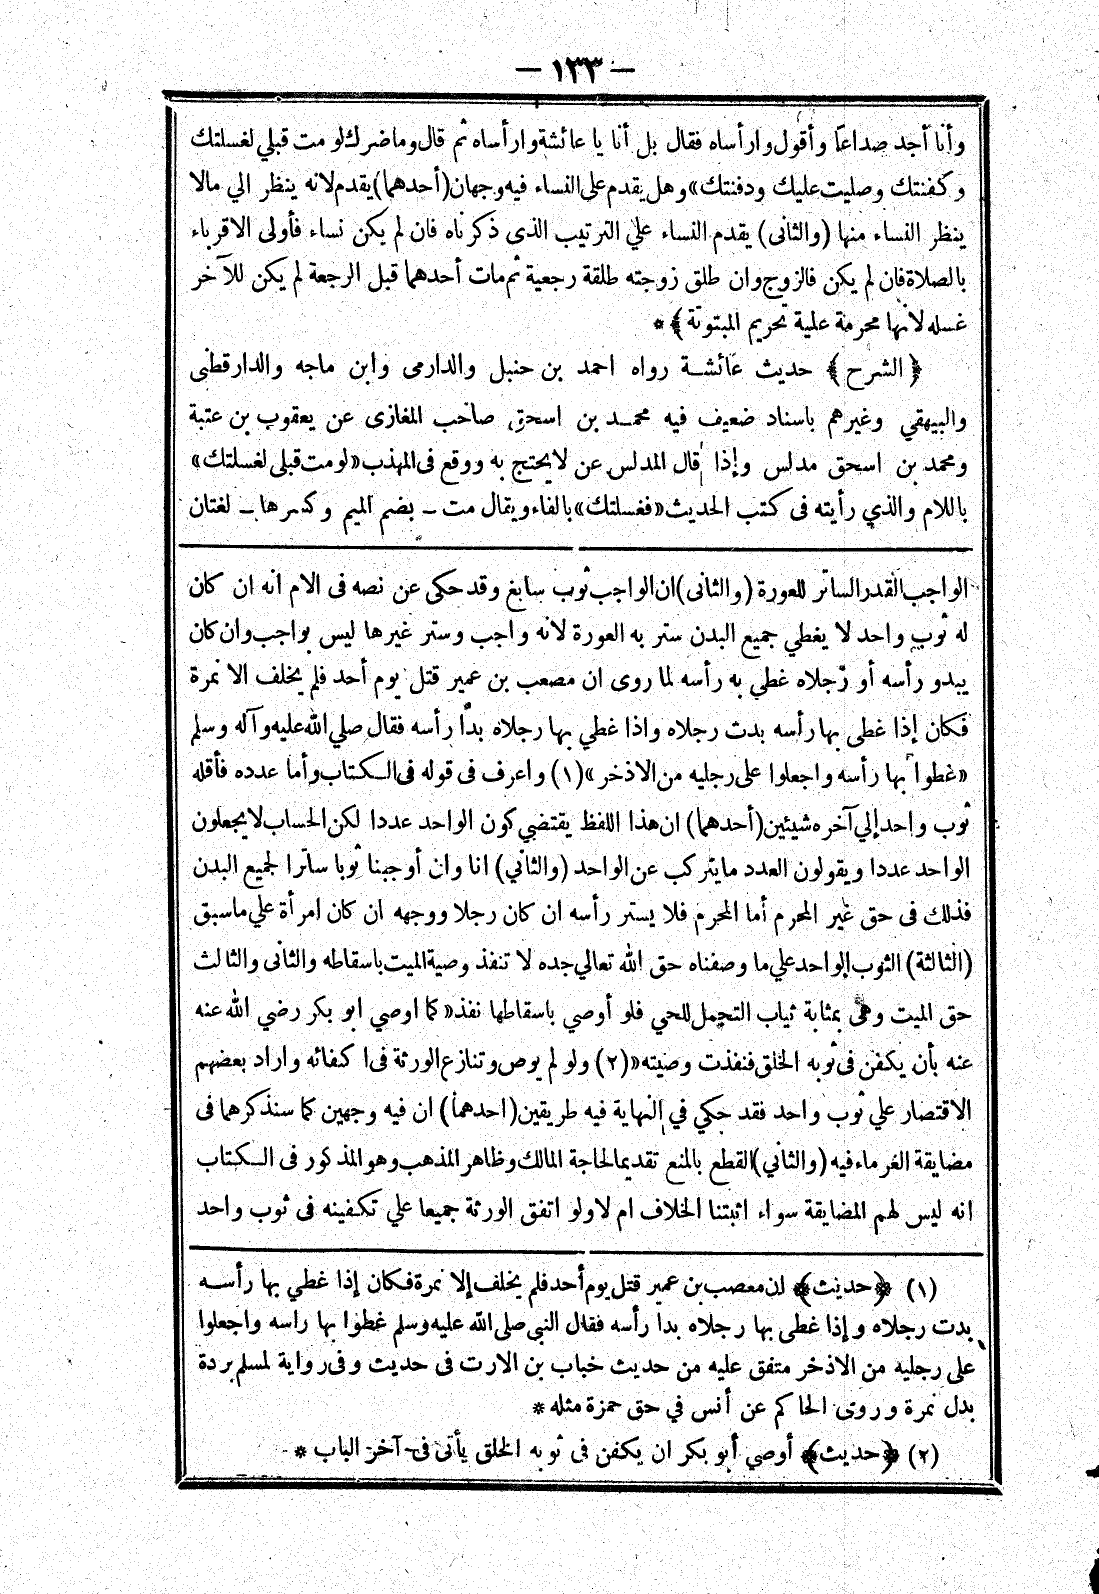 — ١٣٣ —
وأنا أجد صداعا وأقول وارأساه فقال بل أنا يا عائشة وارأساه ثم قال وما ضرك لو مت قبلي لغسلتك
وكفنتك وصليت عليك ودفنتك» وهل يقدم على النساء فيه وجهان (أحدهما) يقدم لانه ينظر الي مالا
ينظر النساء منها (والثانى) يقدم النساء علي الترتيب الذى ذكرناه فان لم يكن نساء فأولى الاقرباء
بالصلاة فان لم يكن فالزوج وان طلق زوجته طلقة رجعية ثم مات أحدهما قبل الرجعة لم يكن للآخر
غسله لانها محرمة علية تحريم المبتوتة ﴾ *
﴿ الشرح ﴾ حديث عائشة رواه احمد بن حنبل والدارمى وابن ماجه والدارقطنى
والبيهقي وغيرهم باسناد ضعيف فيه محمد بن اسحق صاحب المغازى عن يعقوب بن عتبة
ومحمد بن اسحق مدلس وإذا قال المدلس عن لا يحتج به ووقع فى المهذب «لو مت قبلى لغسلتك»
باللام والذي رأيته فى كتب الحديث «فغسلتك» بالفاء ويقال مت ــ بضم الميم وكسرها ــ لغتان
الواجب القدر الساتر للعورة (والثانى) ان الواجب ثوب سابغ وقد حكى عن نصه فى الام انه ان كان
له ثوب واحد لا يغطي جميع البدن ستر به العورة لانه واجب وستر غيرها ليس بواجب وان كان
يبدو رأسه أو رجلاه غطي به رأسه لما روى ان مصعب بن عمير قتل يوم أحد فلم يخلف الا نمرة
فكان إذا غطى بها رأسه بدت رجلاه واذا غطي بها رجلاه بدا رأسه فقال صلي الله عليه وآله وسلم
«غطوا بها رأسه واجعلوا على رجليه من الاذخر» (١) واعرف فى قوله فى الكتاب وأما عدده فأقله
ثوب واحد إلي آخره شيئين (أحدهما) ان هذا اللفظ يقتضي كون الواحد عددا لكن الحساب لا يجعلون
الواحد عددا ويقولون العدد ما يتركب عن الواحد (والثاني) انا وان أوجبنا ثوبا ساترا لجميع البدن
فذلك فى حق غير المحرم أما المحرم فلا يستر رأسه ان كان رجلا ووجهه ان كان امرأة علي ما سبق
(الثالثة) الثوب الواحد علي ما وصفناه حق الله تعالي جده لا تنفذ وصية الميت باسقاطه والثانى والثالث
حق الميت وهى بمثابة ثياب التجمل للحي فلو أوصي باسقاطها نفذ «كما اوصي ابو بكر رضي الله عنه
عنه بأن يكفن فى ثوبه الخلق فنفذت وصيته» (٢) ولو لم يوص وتنازع الورثة فى اكفائه واراد بعضهم
الاقتصار علي ثوب واحد فقد حكي في النهاية فيه طريقين (احدهما) ان فيه وجهين كما سنذكرهما فى
مضايقة الغرماء فيه (والثاني) القطع بالمنع تقديما لحاجة المالك وظاهر المذهب وهو المذكور فى الكتاب
انه ليس لهم المضايقة سواء اثبتنا الخلاف ام لا ولو اتفق الورثة جميعا علي تكفينه فى ثوب واحد
(١) ﴿ حديث ﴾ ان معصب بن عمير قتل يوم أحد فلم يخلف إلا نمرة فكان إذا غطي بها رأسه
بدت رجلاه وإذا غطى بها رجلاه بدا رأسه فقال النبي صلى الله عليه وسلم غطوا بها راسه واجعلوا
على رجليه من الاذخر متفق عليه من حديث خباب بن الارت فى حديث وفى رواية لمسلم بردة
بدل نمرة وروى الحاكم عن أنس في حق حمزة مثله *
(٢) ﴿ حديث ﴾ أوصي أبو بكر ان يكفن فى ثوبه الخلق يأتى فى آخر الباب *